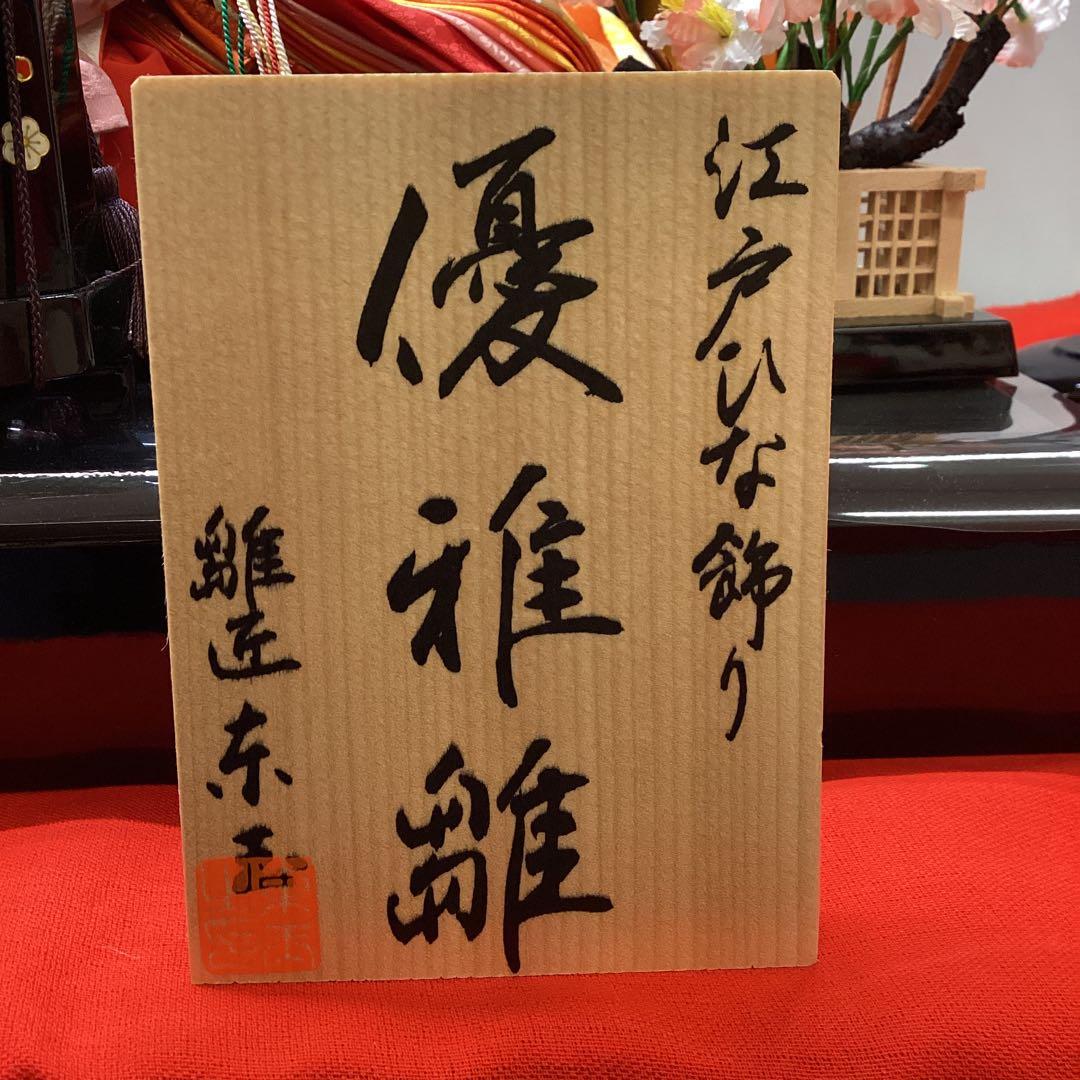 江戸ひな飾り
優雅雛
雛匠東玉